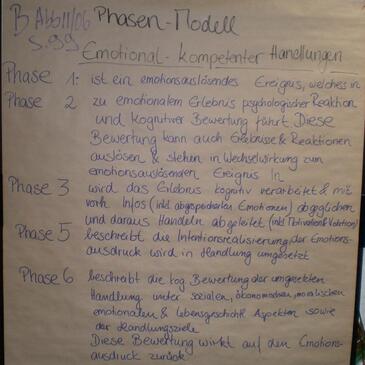 B Abb 11/06 Phasen-Modell
S. 99
Emotional-kompetenter Handlungen
Phase 1: ist ein emotionsauslösendes Ereignis, welches in
Phase 2 zu emotionalem Erlebnis psychologischer Reaktion
und kognitiver Bewertung führt. Diese
Bewertung kann auch Erlebnisse & Reaktionen
auslösen & stehen in Wechselwirkung zum
emotionsauslösenden Ereignis In
Phase 3 wird das Erlebnis kognitiv verarbeitet & mit
vorh. Infos (inkl. abgespeicherten Emotionen) abgeglichen
und daraus Handeln abgeleitet (inkl Motivation & Volition)
Phase 5 beschreibt die Intentionsrealisierung, der Emotions-
ausdruck wird in Handlung umgesetzt
Phase 6 beschreibt die kog. Bewertung der umgesetzten
Handlung unter sozialen, ökonomischen, moralischen
emotionalen & lebensgeschichtl. Aspekten sowie
der Handlungsziele
Diese Bewertung wirkt auf den Emotions-
ausdruck zurück